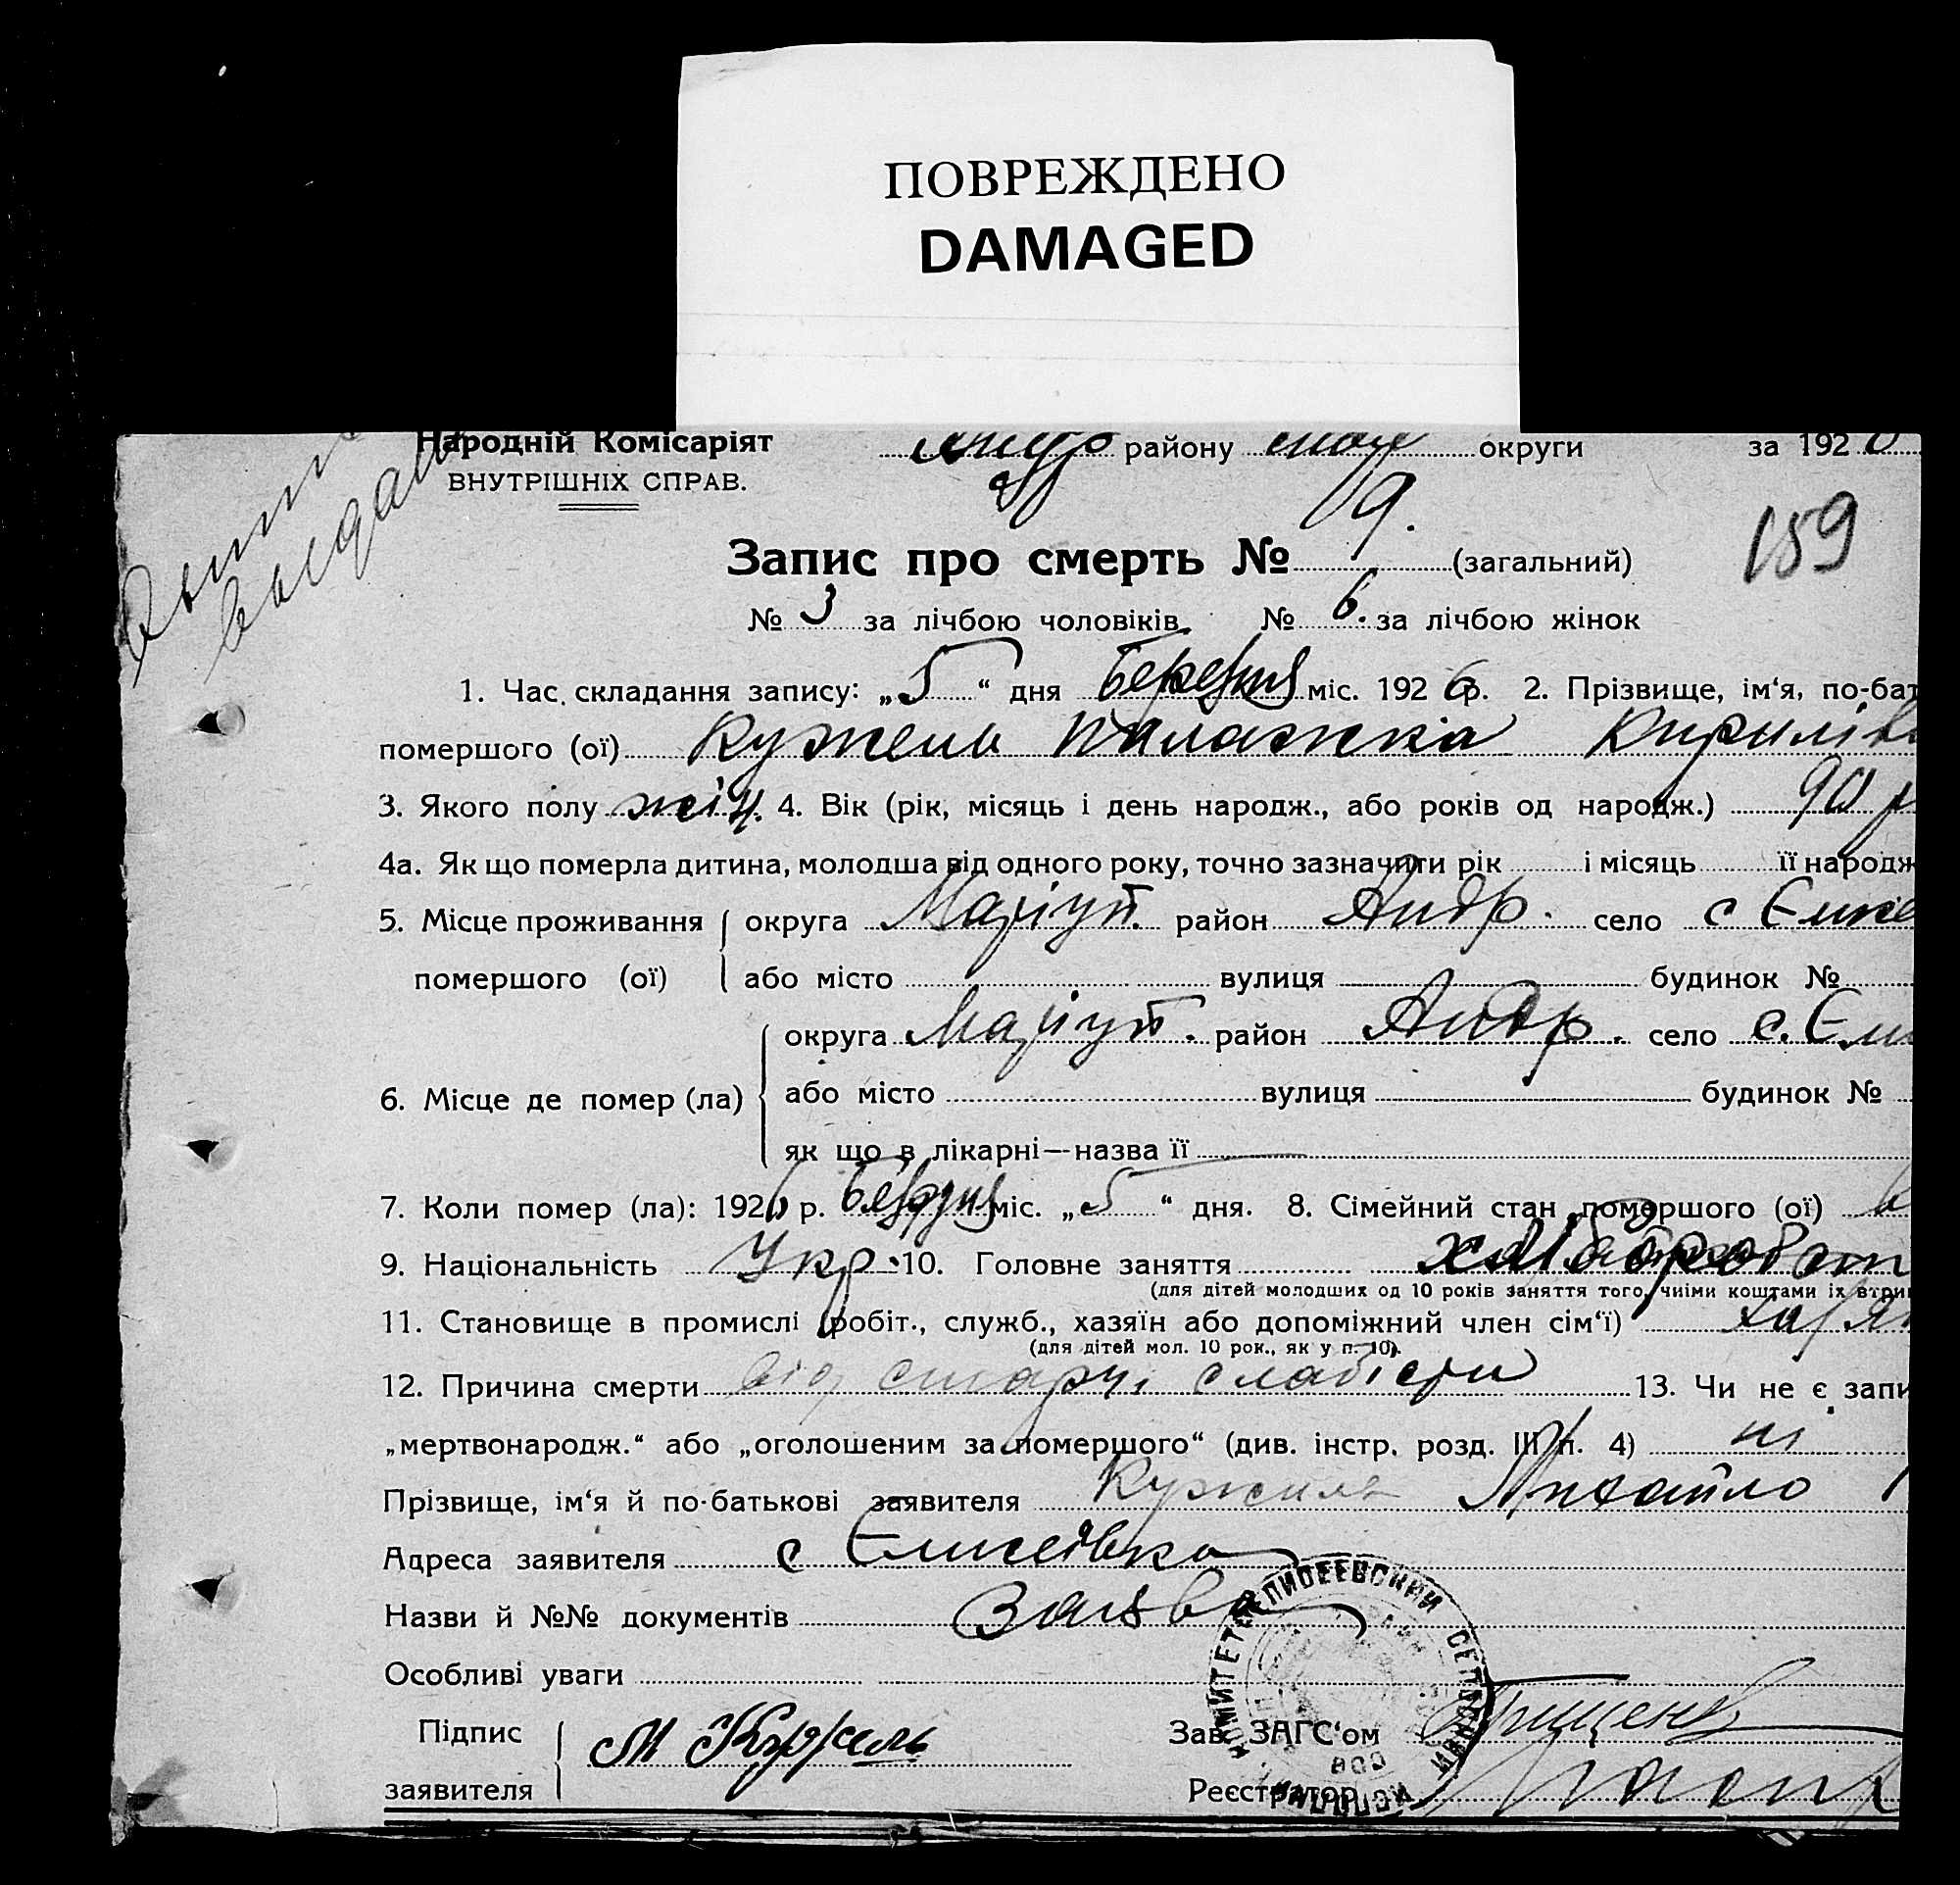 ПОВРЕЖДЕНО
DAMAGED
Народній Комісаріят району округи за 192
ВНУТРІШНІХ СПРАВ.
Запис про смерть № 9. (загальний)
159
№ 3 за лічбою чоловіків № 6. за лічбою жінок
1. Час складання запису: „5“ дня Березня міс. 1926 р. 2. Прізвище, ім‘я, по-бат
помершого (ої) Кужель Палажка Кирилівн
3. Якого полу жін. 4. Вік (рік, місяць і день народж., або років од народж.) 90 р
4а. Як що померла дитина, молодша від одного року, точно зазначити рік і місяць її народж
5. Місце проживання округа Маріуп. район Андр. село с Єлисе
помершого (ої) або місто вулиця будинок №
округа Маріуп. район Андр. село с. Єли
6. Місце де помер (ла) або місто вулиця будинок №
як що в лікарні—назва її
7. Коли помер (ла): 1926 р. Березня міс. „5“ дня. 8. Сімейний стан помершого (ої) в
9. Національність Укр. 10. Головне заняття хліборобст
(для дітей молодших од 10 років заняття того, чиїми коштами їх втрим
11. Становище в промислі (робіт., служб., хазяїн або допоміжний член сім‘ї)
(для дітей мол. 10 рок., як у п. 10).
12. Причина смерти від старчі слабісти 13. Чи не є запи
„мертвонародж.“ або „оголошеним за помершого“ (див. інстр. розд. III п. 4) ні
Прізвище, ім‘я й по-батькові заявителя Кужель Михайло
Адреса заявителя с Єлисеівка
Назви й №№ документів Заява
Особливі уваги
Підпис М Кужель Зав. ЗАГС‘ом
заявителя Реєстратор